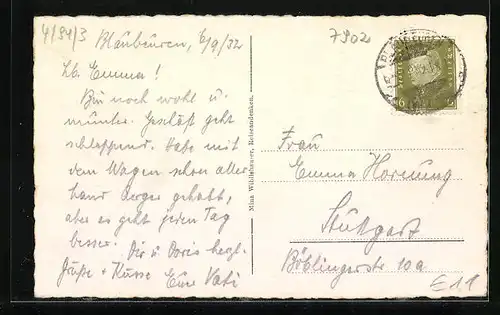 4/94/3
7902
Blaubeuren, 6/9/32
Lb. Emma!
Bin noch wohl u.
munter. Geschäft geht
schleppend. Habe mit
dem Wagen schon aller
hand Ärger gehabt,
aber es geht jeden Tag
besser. Dir u. Doris herzl.
Grüße + Küsse Eure Vati
Mina Wühlshauer, Reiseandenken.
Frau
Emma Hornung
Stuttgart
Böblingerstr 10a
E11
6 6